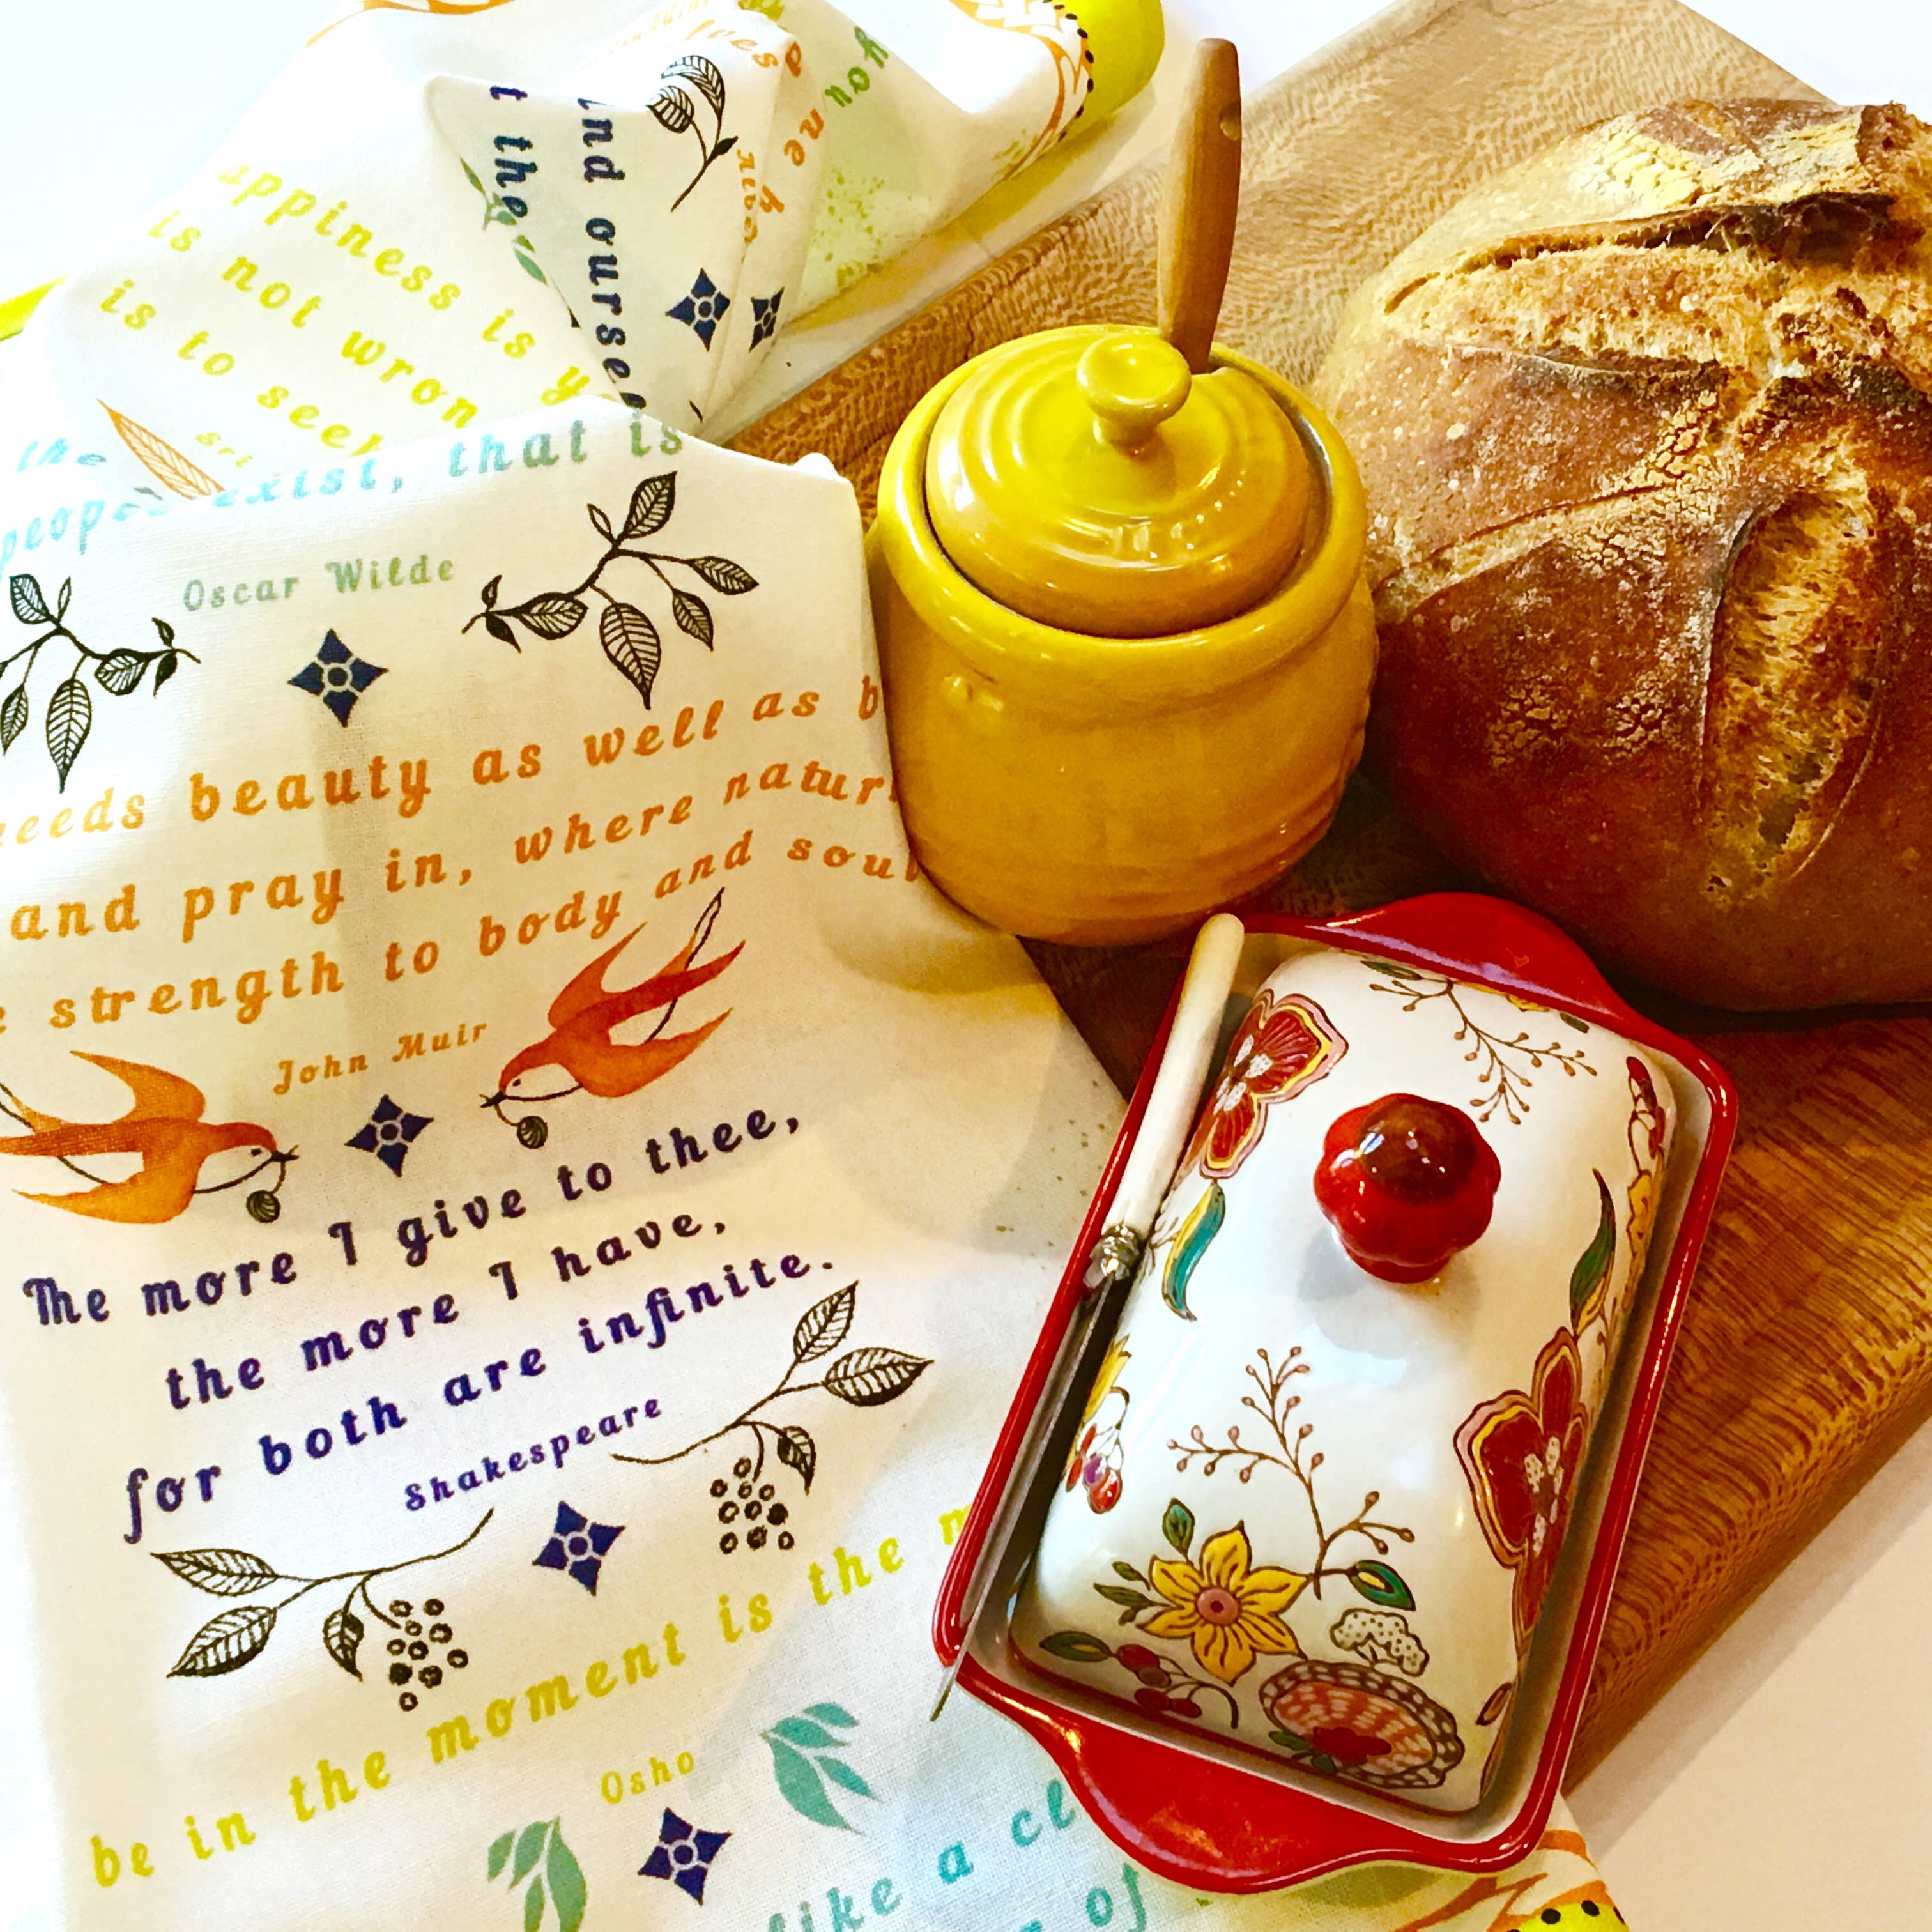 t the
ind ourse
you
appiness is y
is not wron
is to seek
Sri
the
people exist, that is
Oscar Wilde
eeds beauty as well as b
and pray in, where natur
e strength to body and soul
John Muir
The more I give to thee,
the more I have,
for both are infinite.
Shakespeare
be in the moment is the m
Osho
like a cl
of